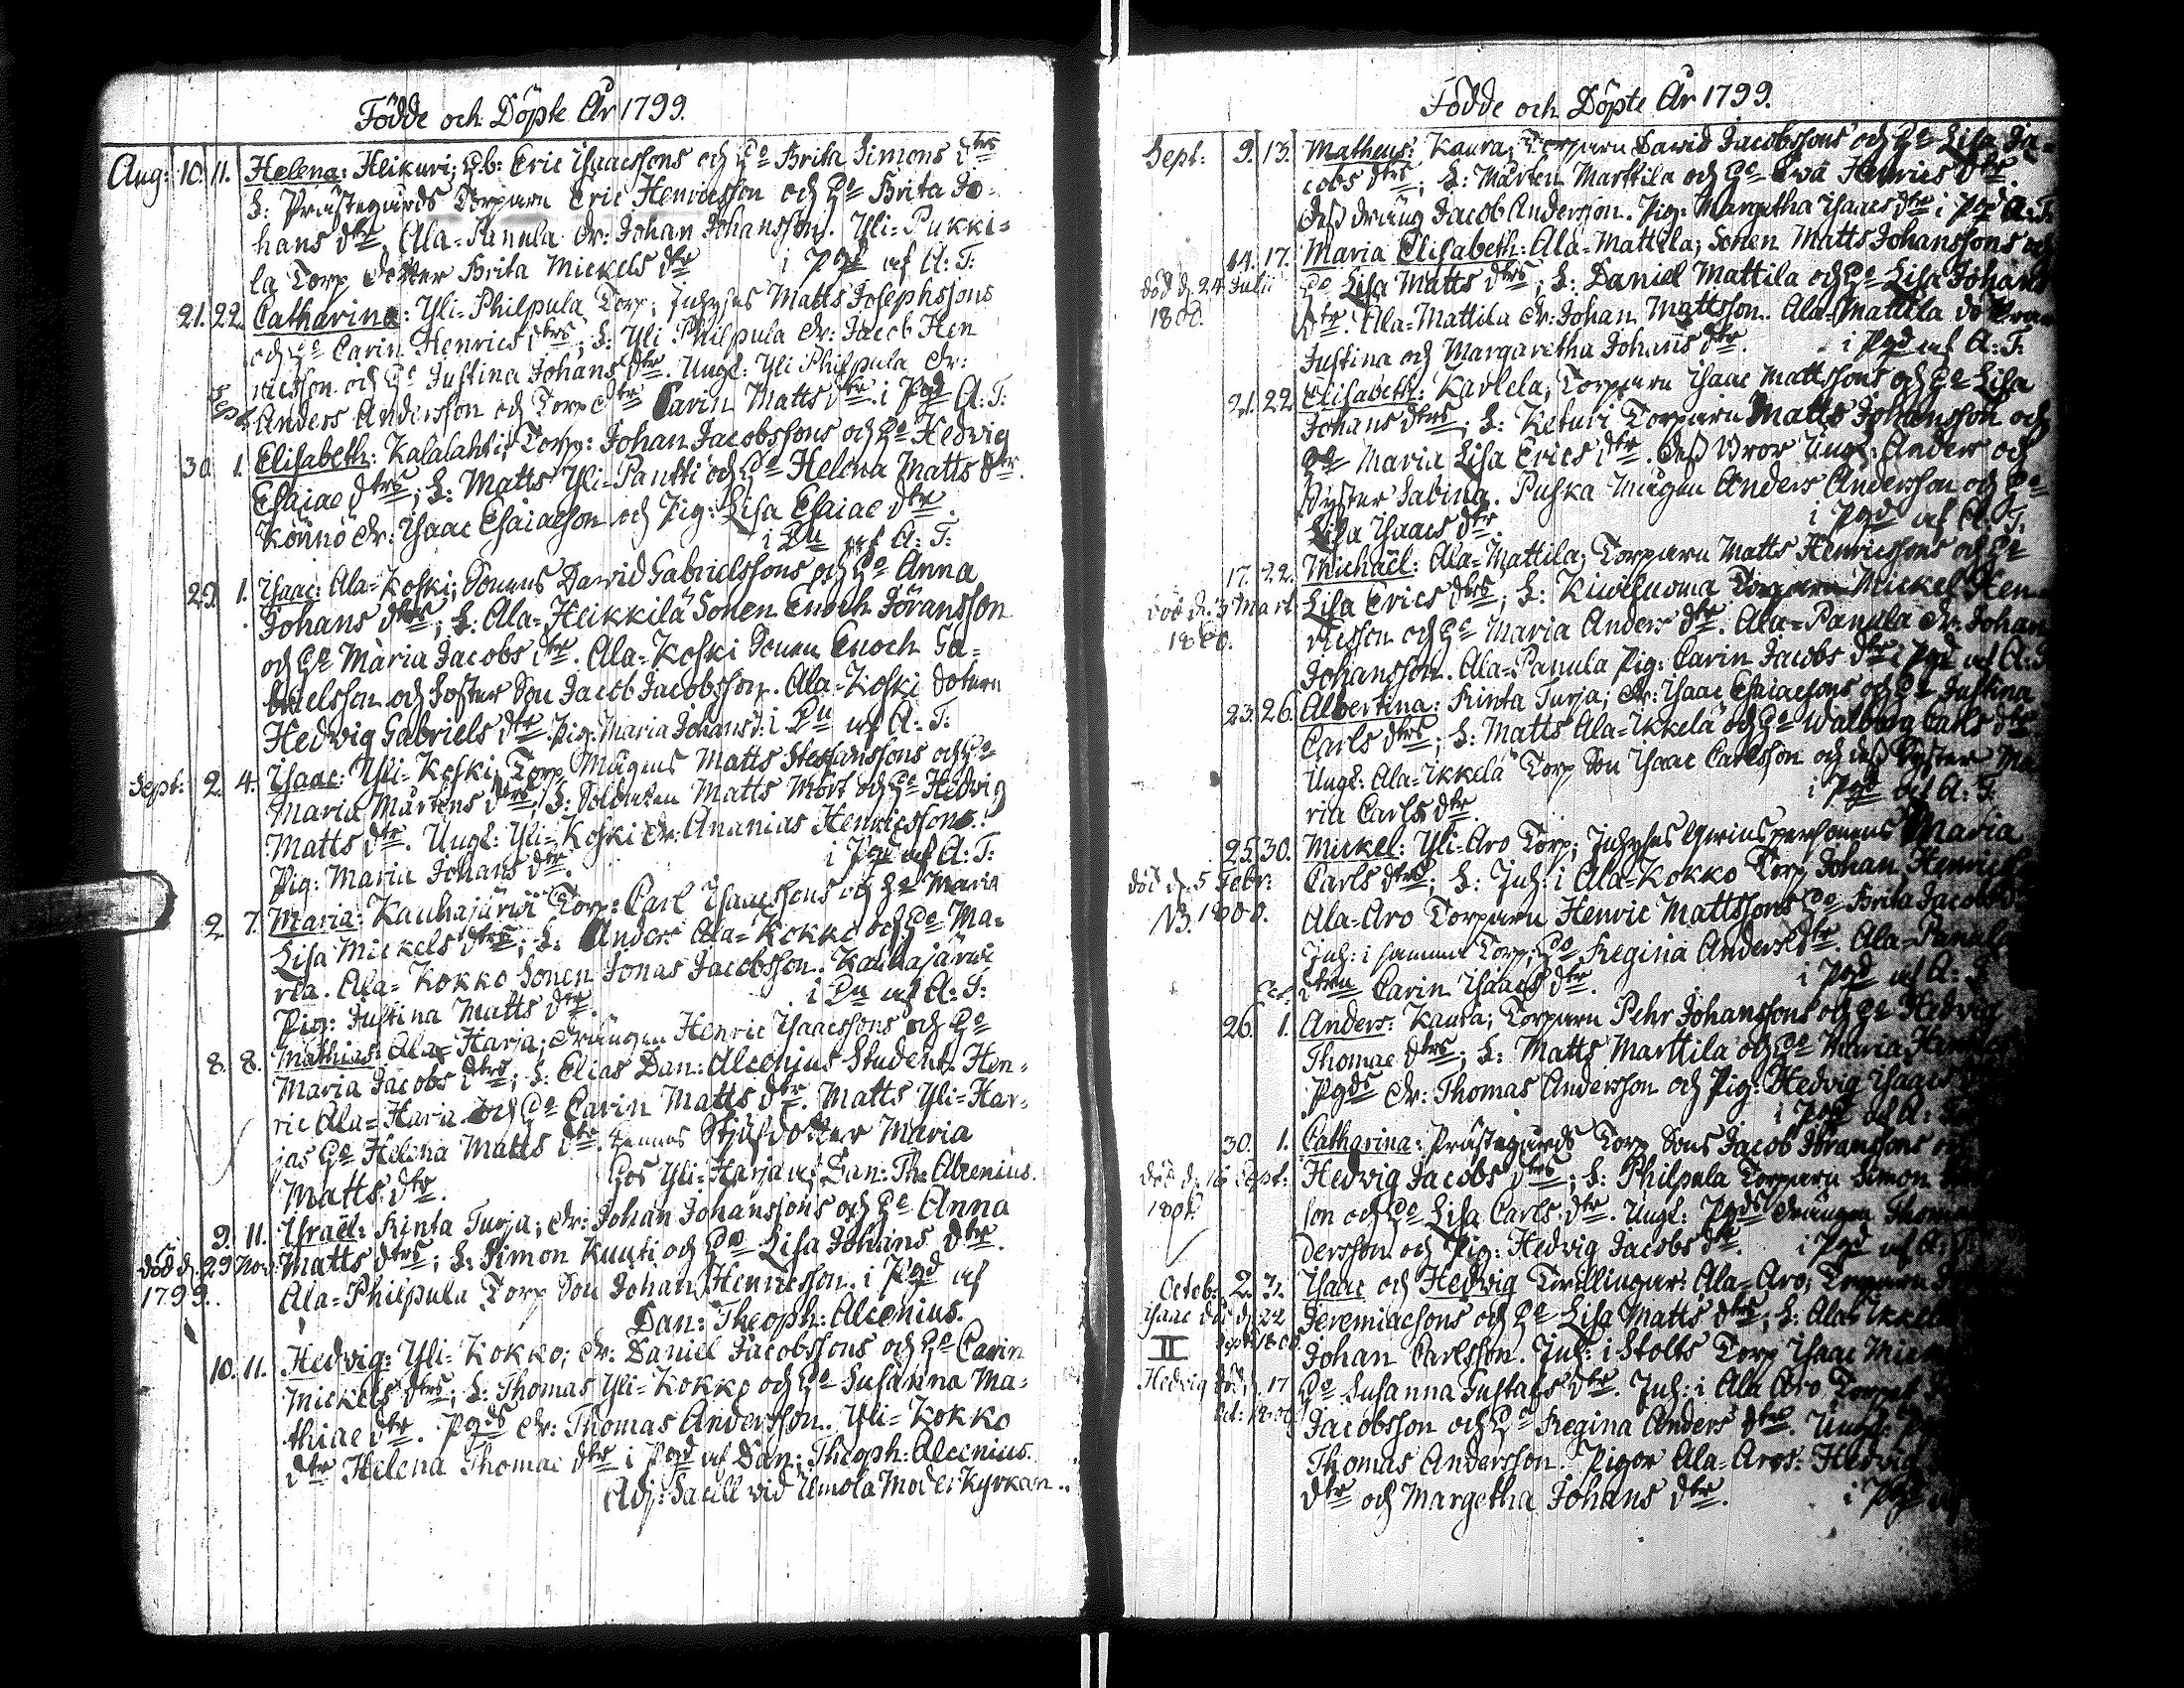 Födde och Döpte År 1799.
Aug: 10. 11. Helena: Heikuri; Eric Isaacssons och H:o Brita Simons dtrs
S: Prästegårds Torparn Eric Henricsson och H:o Brita Jo-
hans dtr. Ala-Panula dr: Johan Johansson. Yli-Pukki-
la Torp dotter Brita Mickels dtr i Pgd af A: T:
21. 22. Catharina: Yli-Philpula Torp; Inhyses Matts Josephssons
och H:o Carin Henrics dtrs; S: Yli Philpula dr: Jacob Hen
ricsson och H:o Justina Johans dtr. Ungl: Yli Philpula dr:
Sept Anders Andersson och Torp dtr Carin Matts dtr. i Pgd A: T:
30 1. Elisabeth: Kalalahti; Torp: Johan Jacobssons och H:o Hedvig
Esaiae dtrs; S: Matts Yli-Pantti och H:o Helena Matts dtr.
Könnö dr: Isaac Esaiaeson och Pig: Lisa Esaiae dtr.
i Du af A: T:
29. 1. Isaac: Ala-Koski; Sonens David Gabrielssons och H:o Anna
Johans dtrs; S: Ala-Heikkilä Sonen Enoch Göransson
och H:o Maria Jacobs dtr. Ala-Koski Sonen Enoch Ga-
brielsson och Foster Son Jacob Jacobsson. Ala-Koski dotren
Hedvig Gabriels dtr. Pig: Maria Johans d: i Du af A: T:
Sept: 2. 4. Isaac: Yli-Koski Torp Mågens Matts Stephanssons och H:o
Maria Mårtens dtrs; S: Soldaten Matts Mört och H:o Hedvig
Matts dtr. Ungl: Yli-Koski dr: Ananias Henricsson.
Pig: Maria Johans dtr. i Pgd af A: T:
2 7. Maria: Kauhajärwi Torp: Carl Isaacssons och H:o Maria
Lisa Mickels dtrs; S: Anders Ala-Kokko och H:o Ma-
ria. Ala-Kokko Sonen Jonas Jacobsson. Kauhajärwi
Pig: Justina Matts dtr. i Du af A: T:
8. 8. Mathias: Ala-Harja; drängen Henric Isaacssons och H:o
Maria Jacobs dtrs; S: Elias Dan: Alcenius Student. Hen-
ric Ala-Harja och H:o Carin Matts dtr. Matts Yli-Har-
jas H:o Helena Matts dtr. hennes Stjufdotter Maria
Matts dtr. hos Yli-Harja af Dan: Th: Alcenius.
9. 11. Israël: Rinta Turja; dr: Johan Johanssons och H:o Anna
död d. 29 Nov: Matts dtrs; S: Simon Kuuti och H:o Lisa Johans dtr.
1799. Ala-Philpula Torp Son Johan Henricsson. i Pgd af
Dan: Theoph: Alcenius.
10. 11. Hedvig: Yli-Kokko; dr: Daniel Jacobssons och H:o Carin
Mickels dtrs; S: Thomas Yli-Kokko och H:o Susanna Ma-
thiae dtr. Pgds dr: Thomas Andersson. Yli-Kokko
dtr Helena Thomae dtr i Pgd af Dan: Theoph: Alcenius.
Adj: Sacell vid Umola Moderkyrkan.
Födde och Döpte År 1799.
Sept: 9. 13. Matheus: Kaura; Torparn David Jacobssons och H:o Lisa Ja-
cobs dtrs; S: Mårten Marttila och H:o Ewa Henrics dtr.
dess dräng Jacob Andersson. Pig: Margetha Isaacs dtr i Pgd A: T:
14. 17. Maria Elisabeth: Ala-Mattila; Sonen Matts Johanssons och
död d. 24 Julii H:o Lisa Matts dtrs; S: Daniel Mattila och H:o Lisa Johans
1800. dtr. Ala-Mattila dr: Johan Mattsson. Ala-Mattila
Justina och Margaretha Johans dtr. i Pgd af A: T:
21. 22. Elisabeth: Karlela; Torparn Isaac Mattssons och H:o Lisa
Johans dtrs; S: Keturi Torparn Matts Johansson och
H:o Maria Lisa Erics dtr. dess Bror Ungl: Anders och
Syster Sabina. Puska mågen Anders Andersson och H:o
Lisa Isaacs dtr. i Pgd af A: T:
17. 22. Michaël: Ala-Mattila; Torparn Matts Henricssons och H:o
död d. 3 Mart: Lisa Erics dtrs; S: Torparn Mickel Hen
1800. ricsson och H:o Maria Anders dtr. Ala-Panula dr: Johan
Johansson. Ala-Panula Pig: Carin Jacobs dtr i Pgd af A: T:
23. 26. Albertina: Rinta Turja; dr: Isaac Esaiaesons och H:o Justina
Carls dtrs; S: Matts Ala-Ikkelä och H:o Walborg Carls dtr
Ungl: Ala-Ikkelä Torp Son Isaac Carlsson och dess Syster Ma
ria Carls dtr. i Pgd af A: T.
25. 30. Mickel: Yli-Aro Torp; Inhyses Qwinspersonens Maria
död d. 5 Febr: Carls dtrs; S: Inh: i Ala-Kokko Torp Johan Henrics
N3. 1800. Ala-Aro Torparn Henric Mattssons H:o Brita Jacobs
Inh: i samma Torp; H:o Regina Anders dtr. Ala-Panula
dtrn Carin Isaacs dtr. i Pgd af A: T
26. 1. Anders: Kaura; Torparn Pehr Johanssons och H:o Hedvig
Thomae dtrs; S: Matts Marttila och H:o Maria
Pgds dr: Thomas Andersson och Pig: Hedvig Isaacs
i Pgd af A: T
30. 1. Catharina: Prästegårds Torp Sons Jacob Göranssons och
död d. 16 Sept: Hedvig Jacobs dtrs; S: Philpula Torparn Simon
1801. son och H:o Lisa Carls dtr. Ungl: Pgds drängen Thomas
dersson och Pig: Hedvig Jacobs dtr. i Pgd af A: T
Octob: 2. 3. Isaac och Hedvig Twillingar: Ala-Aro; Torparn
Isaac död d. 22 Jeremiaesons och H:o Lisa Matts dtrs; S: Ala-Ikkelä
II Sept: 1800. Johan Carlsson. Inh: i Stolts Torp Isaac
Hedvig död d. 17 H:o Susanna Gustafs dtr. Inh: i Ala Aro Torpet
Oct: 1800 Jacobsson och H:o Regina Anders dtr. Ungl:
Thomas Andersson. Pigor Ala-Aros: Hedvig
dtr och Margetha Johans dtr. i Pgd af